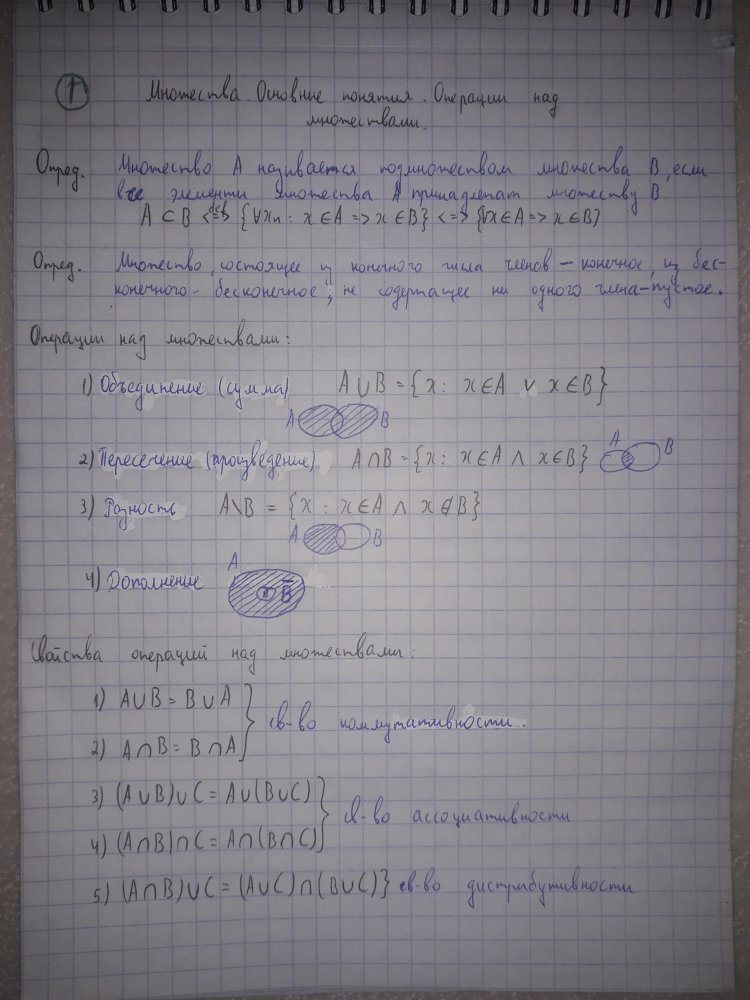 1 Множества. Основные понятия. Операции над
множествами.
Опред. Множество A называется подмножеством множества B, если
все элементы множества A принадлежат множеству B
A ⊂ B <=def=> {∀x: x ∈ A => x ∈ B} <=> {∀x ∈ A => x ∈ B}
Опред. Множество, состоящее из конечного числа членов – конечное, из бес-
конечного - бесконечное, не содержащее ни одного члена - пустое.
Операции над множествами:
1) Объединение (сумма) A ∪ B = {x: x ∈ A ∨ x ∈ B}
A B
2) Пересечение (произведение) A ∩ B = {x: x ∈ A ∧ x ∈ B} A B
3) Разность A\B = {x: x ∈ A ∧ x ∉ B}
A B
4) Дополнение A B̅
Свойства операций над множествами:
1) A ∪ B = B ∪ A
} св-во коммутативности.
2) A ∩ B = B ∩ A
3) (A ∪ B) ∪ C = A ∪ (B ∪ C)
} св-во ассоциативности
4) (A ∩ B) ∩ C = A ∩ (B ∩ C)
5) (A ∩ B) ∪ C = (A ∪ C) ∩ (B ∪ C)} св-во дистрибутивности